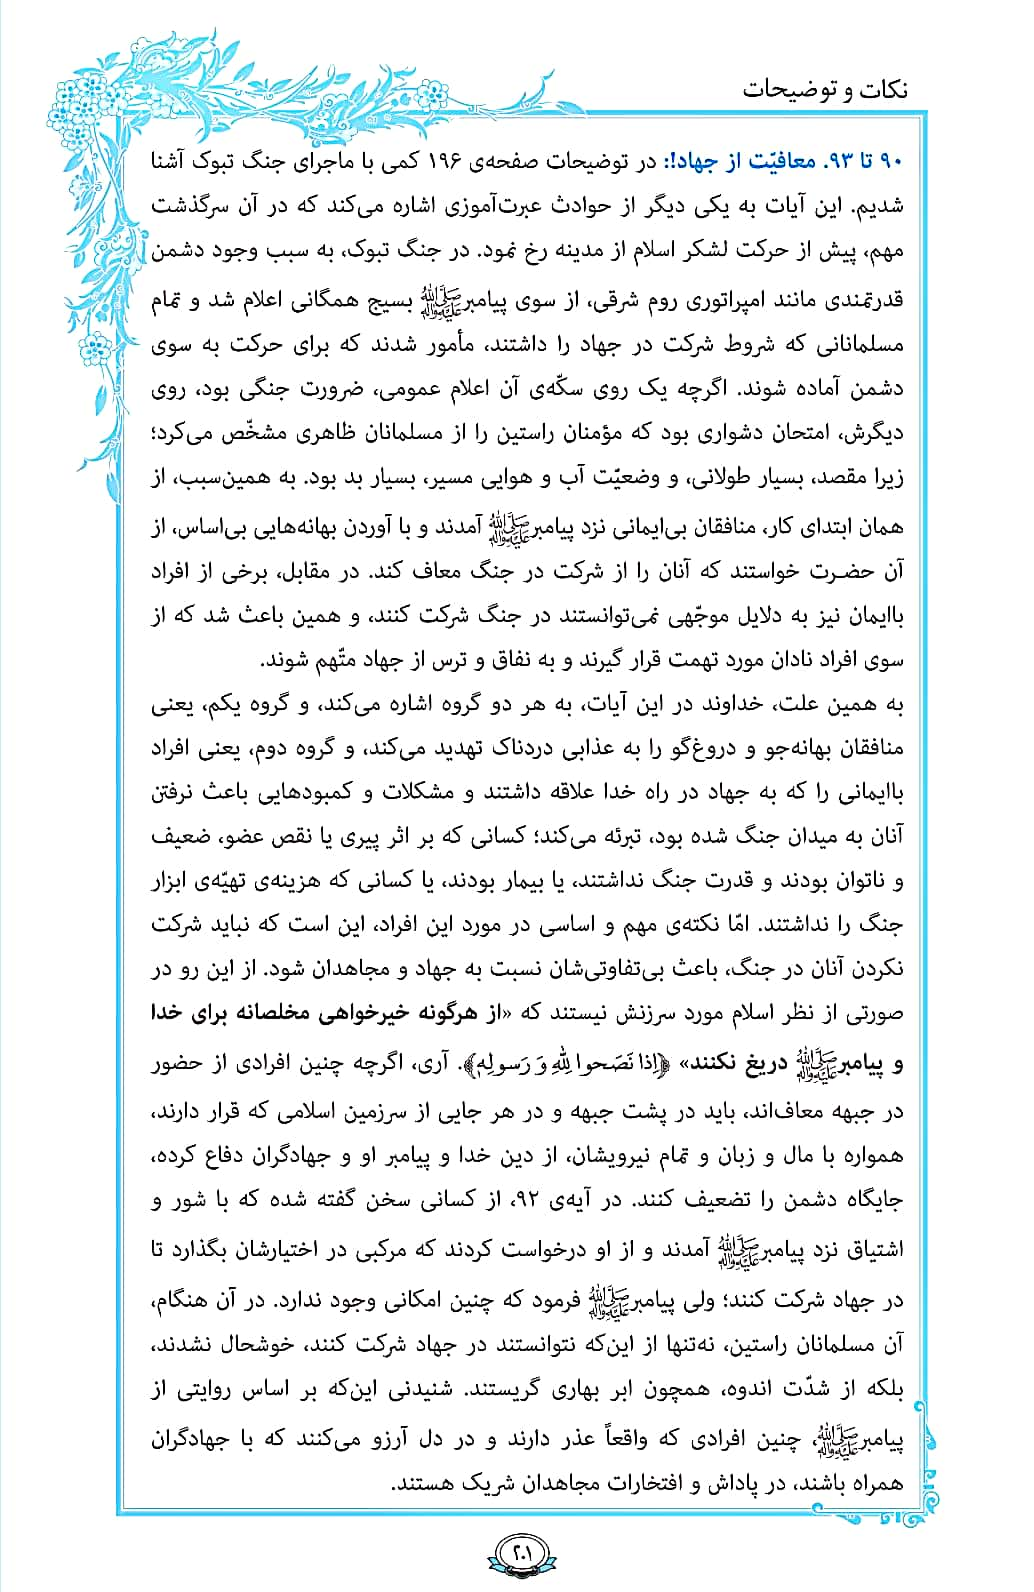 نکات و توضیحات
۹۰ تا ۹۳. معافیّت از جهاد!: در توضیحات صفحه‌ی ۱۹۶ کمی با ماجرای جنگ تبوک آشنا
شدیم. این آیات به یکی دیگر از حوادث عبرت‌آموزی اشاره می‌کند که در آن سرگذشت
مهم، پیش از حرکت لشکر اسلام از مدینه رخ نمود. در جنگ تبوک، به سبب وجود دشمن
قدرتمندی مانند امپراتوری روم شرقی، از سوی پیامبرﷺ بسیج همگانی اعلام شد و تمام
مسلمانانی که شروط شرکت در جهاد را داشتند، مأمور شدند که برای حرکت به سوی
دشمن آماده شوند. اگرچه یک روی سکّه‌ی آن اعلام عمومی، ضرورت جنگی بود، روی
دیگرش، امتحان دشواری بود که مؤمنان راستین را از مسلمانان ظاهری مشخّص می‌کرد؛
زیرا مقصد، بسیار طولانی، و وضعیّت آب و هوایی مسیر، بسیار بد بود. به همین‌سبب، از
همان ابتدای کار، منافقان بی‌ایمانی نزد پیامبرﷺ آمدند و با آوردن بهانه‌هایی بی‌اساس، از
آن حضرت خواستند که آنان را از شرکت در جنگ معاف کند. در مقابل، برخی از افراد
باایمان نیز به دلایل موجّهی نمی‌توانستند در جنگ شرکت کنند، و همین باعث شد که از
سوی افراد نادان مورد تهمت قرار گیرند و به نفاق و ترس از جهاد متّهم شوند.
به همین علت، خداوند در این آیات، به هر دو گروه اشاره می‌کند، و گروه یکم، یعنی
منافقان بهانه‌جو و دروغ‌گو را به عذابی دردناک تهدید می‌کند، و گروه دوم، یعنی افراد
باایمانی را که به جهاد در راه خدا علاقه داشتند و مشکلات و کمبودهایی باعث نرفتن
آنان به میدان جنگ شده بود، تبرئه می‌کند؛ کسانی که بر اثر پیری یا نقص عضو، ضعیف
و ناتوان بودند و قدرت جنگ نداشتند، یا بیمار بودند، یا کسانی که هزینه‌ی تهیّه‌ی ابزار
جنگ را نداشتند. امّا نکته‌ی مهم و اساسی در مورد این افراد، این است که نباید شرکت
نکردن آنان در جنگ، باعث بی‌تفاوتی‌شان نسبت به جهاد و مجاهدان شود. از این رو در
صورتی از نظر اسلام مورد سرزنش نیستند که «از هرگونه خیرخواهی مخلصانه برای خدا
و پیامبرﷺ دریغ نکنند» ﴿اِذا نَصَحوا لِلّٰهِ وَ رَسولِهِ﴾. آری، اگرچه چنین افرادی از حضور
در جبهه معاف‌اند، باید در پشت جبهه و در هر جایی از سرزمین اسلامی که قرار دارند،
همواره با مال و زبان و تمام نیرویشان، از دین خدا و پیامبر او و جهادگران دفاع کرده،
جایگاه دشمن را تضعیف کنند. در آیه‌ی ۹۲، از کسانی سخن گفته شده که با شور و
اشتیاق نزد پیامبرﷺ آمدند و از او درخواست کردند که مرکبی در اختیارشان بگذارد تا
در جهاد شرکت کنند؛ ولی پیامبرﷺ فرمود که چنین امکانی وجود ندارد. در آن هنگام،
آن مسلمانان راستین، نه‌تنها از این‌که نتوانستند در جهاد شرکت کنند، خوشحال نشدند،
بلکه از شدّت اندوه، همچون ابر بهاری گریستند. شنیدنی این‌که بر اساس روایتی از
پیامبرﷺ، چنین افرادی که واقعاً عذر دارند و در دل آرزو می‌کنند که با جهادگران
همراه باشند، در پاداش و افتخارات مجاهدان شریک هستند.
۲۰۱